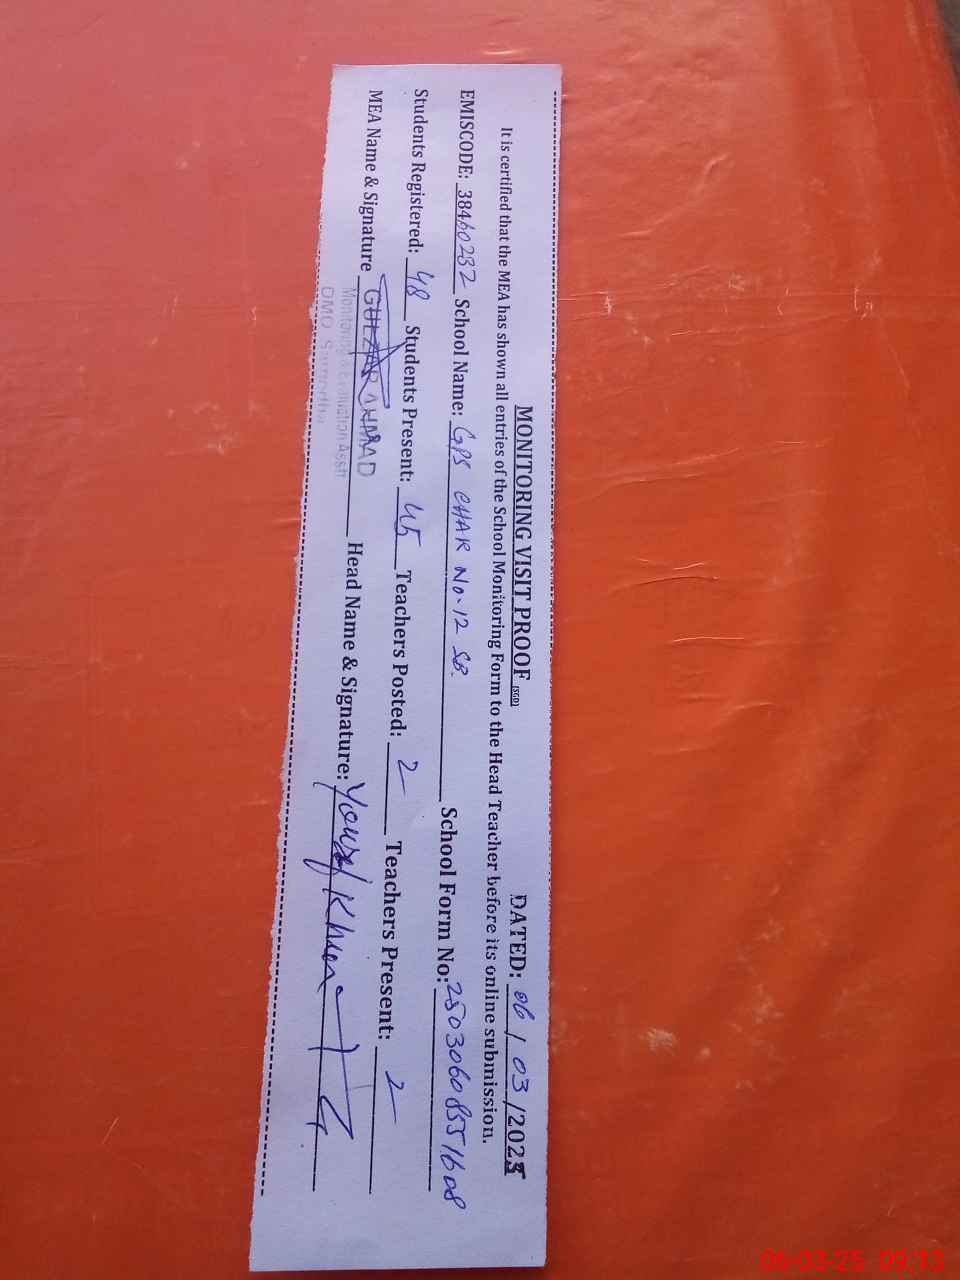 MONITORING VISIT PROOF [SGD] DATED: 06/03/2025
It is certified that the MEA has shown all entries of the School Monitoring Form to the Head Teacher before its online submission.
EMISCODE: 38460232 School Name: GPS CHAK No-12 SB. School Form No: 25030608551608
Students Registered: 48 Students Present: 45 Teachers Posted: 2 Teachers Present: 2
MEA Name & Signature GULZAR AHMAD Head Name & Signature: Yousaf Khan
Monitoring & Evaluation Asstt
DMO Sargodha
06-03-25 09:13